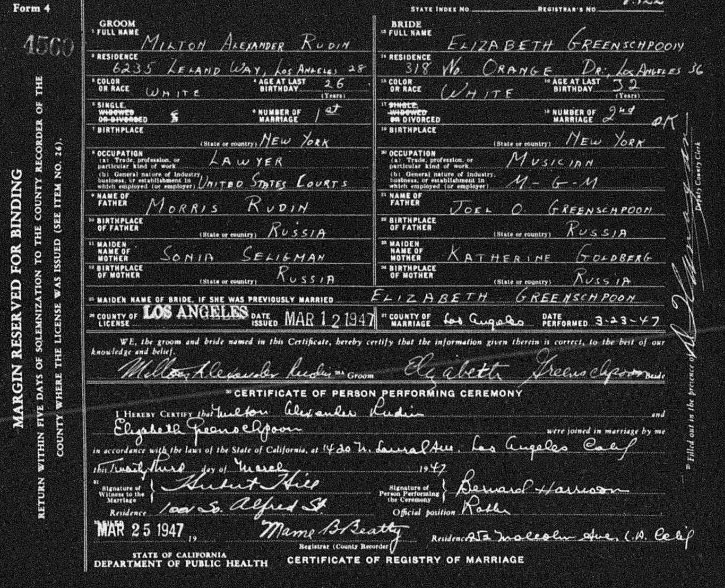 Form 4
STATE INDEX No.
REGISTRAR'S No.
4560
MARGIN RESERVED FOR BINDING
RETURN WITHIN FIVE DAYS OF SOLEMNIZATION TO THE COUNTY RECORDER OF THE
COUNTY WHERE THE LICENSE WAS ISSUED (SEE ITEM NO. 26).
GROOM
1 FULL NAME MILTON ALEXANDER RUDIN
2 RESIDENCE 6235 LELAND WAY, LOS ANGELES 28
3 COLOR OR RACE WHITE 4 AGE AT LAST BIRTHDAY 26 (Years)
5 SINGLE, WIDOWED OR DIVORCED S 6 NUMBER OF MARRIAGE 1st
7 BIRTHPLACE (State or country) NEW YORK
8 OCCUPATION
(a) Trade, profession, or particular kind of work LAWYER
(b) General nature of industry, business, or establishment in which employed (or employer) UNITED STATES COURTS
9 NAME OF FATHER MORRIS RUDIN
10 BIRTHPLACE OF FATHER (State or country) RUSSIA
11 MAIDEN NAME OF MOTHER SONIA SELIGMAN
12 BIRTHPLACE OF MOTHER (State or country) RUSSIA
BRIDE
FULL NAME ELIZABETH GREENSCHPOON
RESIDENCE 318 No. ORANGE DR; LOS ANGELES 36
COLOR OR RACE WHITE AGE AT LAST BIRTHDAY 32 (Years)
SINGLE, WIDOWED OR DIVORCED NUMBER OF MARRIAGE 2nd OK
BIRTHPLACE (State or country) NEW YORK
OCCUPATION
(a) Trade, profession, or particular kind of work MUSICIAN
(b) General nature of industry, business, or establishment in which employed (or employer) M-G-M
NAME OF FATHER JOEL O. GREENSCHPOON
BIRTHPLACE OF FATHER (State or country) RUSSIA
MAIDEN NAME OF MOTHER KATHERINE GOLDBERG
BIRTHPLACE OF MOTHER (State or country) RUSSIA
MAIDEN NAME OF BRIDE, IF SHE WAS PREVIOUSLY MARRIED ELIZABETH GREENSCHPOON
COUNTY OF LICENSE LOS ANGELES DATE ISSUED MAR 12 1947 COUNTY OF MARRIAGE Los Angeles DATE PERFORMED 3-23-47
WE, the groom and bride named in this Certificate, hereby certify that the information given therein is correct, to the best of our
knowledge and belief.
Milton Alexander Rudin Groom Elizabeth Greenschpoon Bride
CERTIFICATE OF PERSON PERFORMING CEREMONY
I HEREBY CERTIFY that Milton Alexander Rudin and
Elizabeth Greenschpoon were joined in marriage by me
in accordance with the laws of the State of California, at 1420 N. Laurel Ave. Los Angeles Calif
this Twenty third day of March 1947
Signature of Witness to the Marriage Hubert Hill
Residence 1001 So. Alfred St
Signature of Person Performing the Ceremony Bernard Harrison
Official position Rabbi
FILED MAR 25 1947 19 Mame B Beatty
Registrar (County Recorder)
Residence 252 Malcolm Ave, L.A. Calif
STATE OF CALIFORNIA
DEPARTMENT OF PUBLIC HEALTH CERTIFICATE OF REGISTRY OF MARRIAGE
Filled out in the presence of
Deputy County Clerk